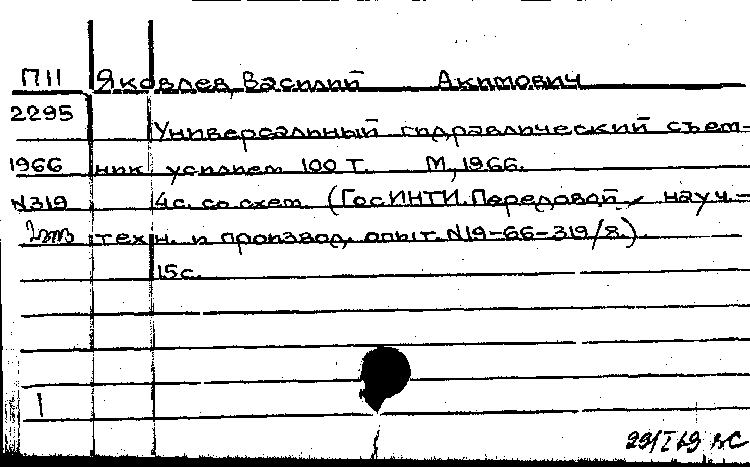 П11 Яковлев, Василий Акимович
2295 Универсальный гидравлический съем-
1966 ник усилием 100 т. М, 1966.
N319 4с. со схем. (ГосИНТИ. Передовой науч.-
техн. и производ. опыт. N19-66-319/8.).
15с.
1
29/I 69